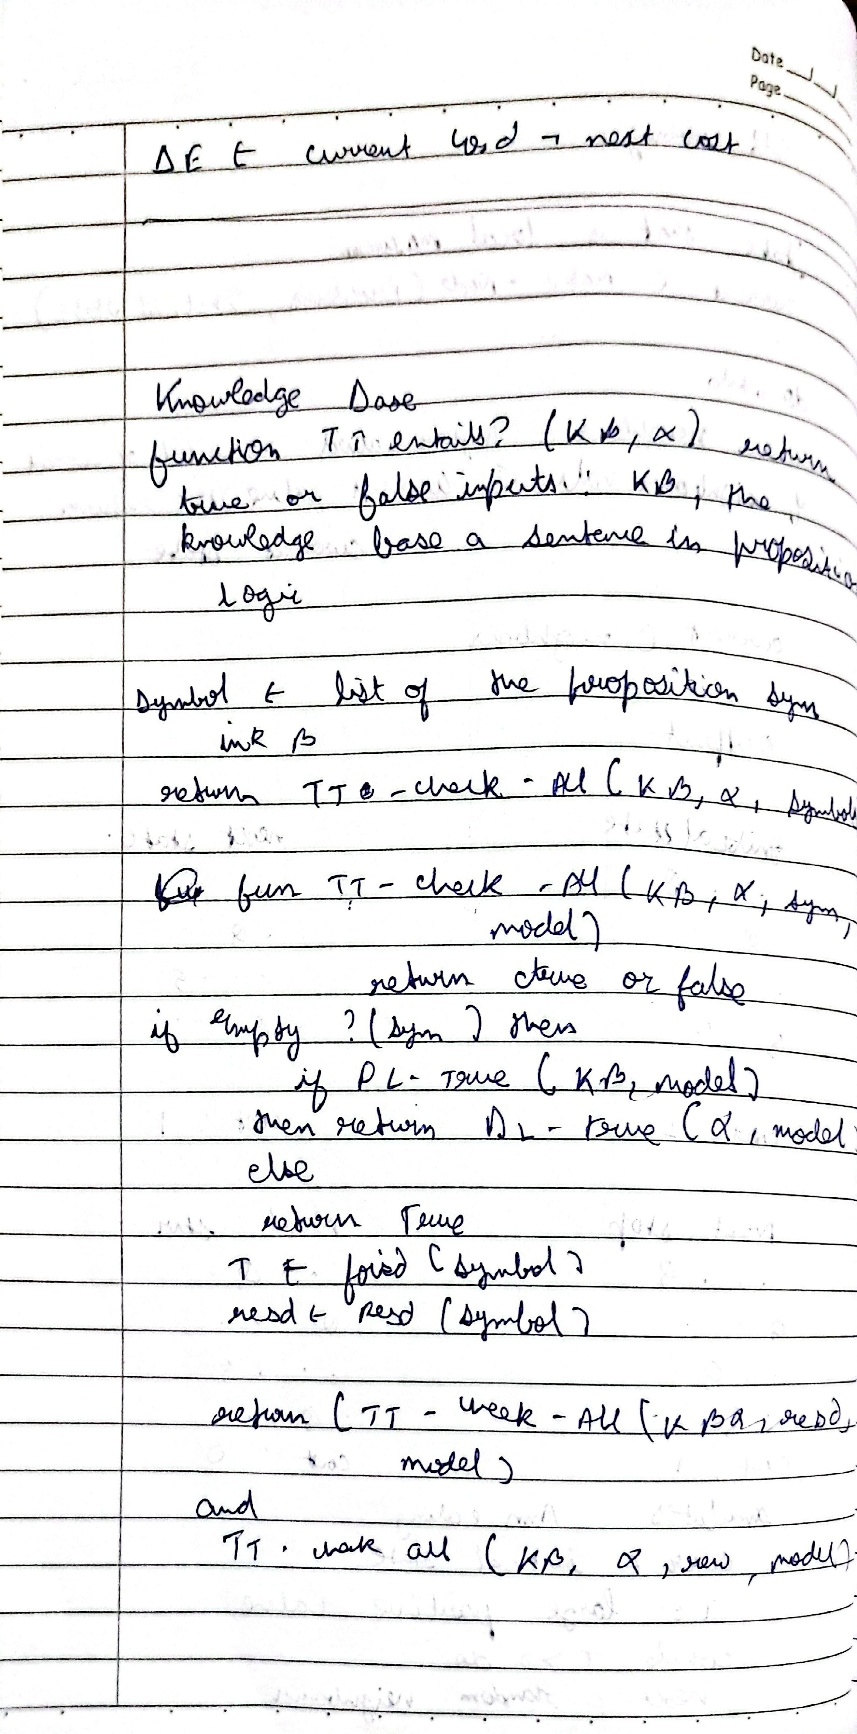 Date
Page
ΔE ← current cost - next cost
Knowledge Base
function TT entails? (KB, α) return
true or false inputs : KB, the
knowledge base a sentence in propositio
logic
Symbol ← list of the proposition sym
in K B
return TT - check - All (KB, α, symbol
fun TT - check - All (KB, α, sym,
model)
return true or false
if empty ? (sym) then
if PL - True (KB, model)
then return PL - true (α, model
else
return True
T ← (symbol)
rest ← Rest (symbol)
return (TT - check - All (K B α, rest,
model)
and
TT - check all (KB, α, , model)